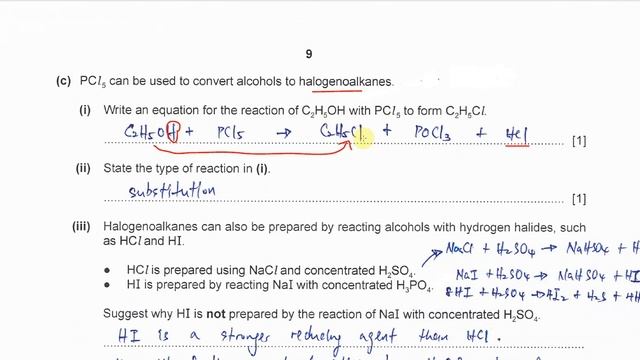 9
(c) PCl5 can be used to convert alcohols to halogenoalkanes.
(i) Write an equation for the reaction of C2H5OH with PCl5 to form C2H5Cl.
C2H5OH + PCl5 → C2H5Cl + POCl3 + HCl
[1]
(ii) State the type of reaction in (i).
substitution
[1]
(iii) Halogenoalkanes can also be prepared by reacting alcohols with hydrogen halides, such
as HCl and HI.
NaCl + H2SO4 → NaHSO4 + H
• HCl is prepared using NaCl and concentrated H2SO4.
NaI + H2SO4 → NaHSO4 + HI
• HI is prepared by reacting NaI with concentrated H3PO4.
8HI + H2SO4 → 4I2 + H2S + 4H
Suggest why HI is not prepared by the reaction of NaI with concentrated H2SO4.
HI is a stronger reducing agent than HCl.